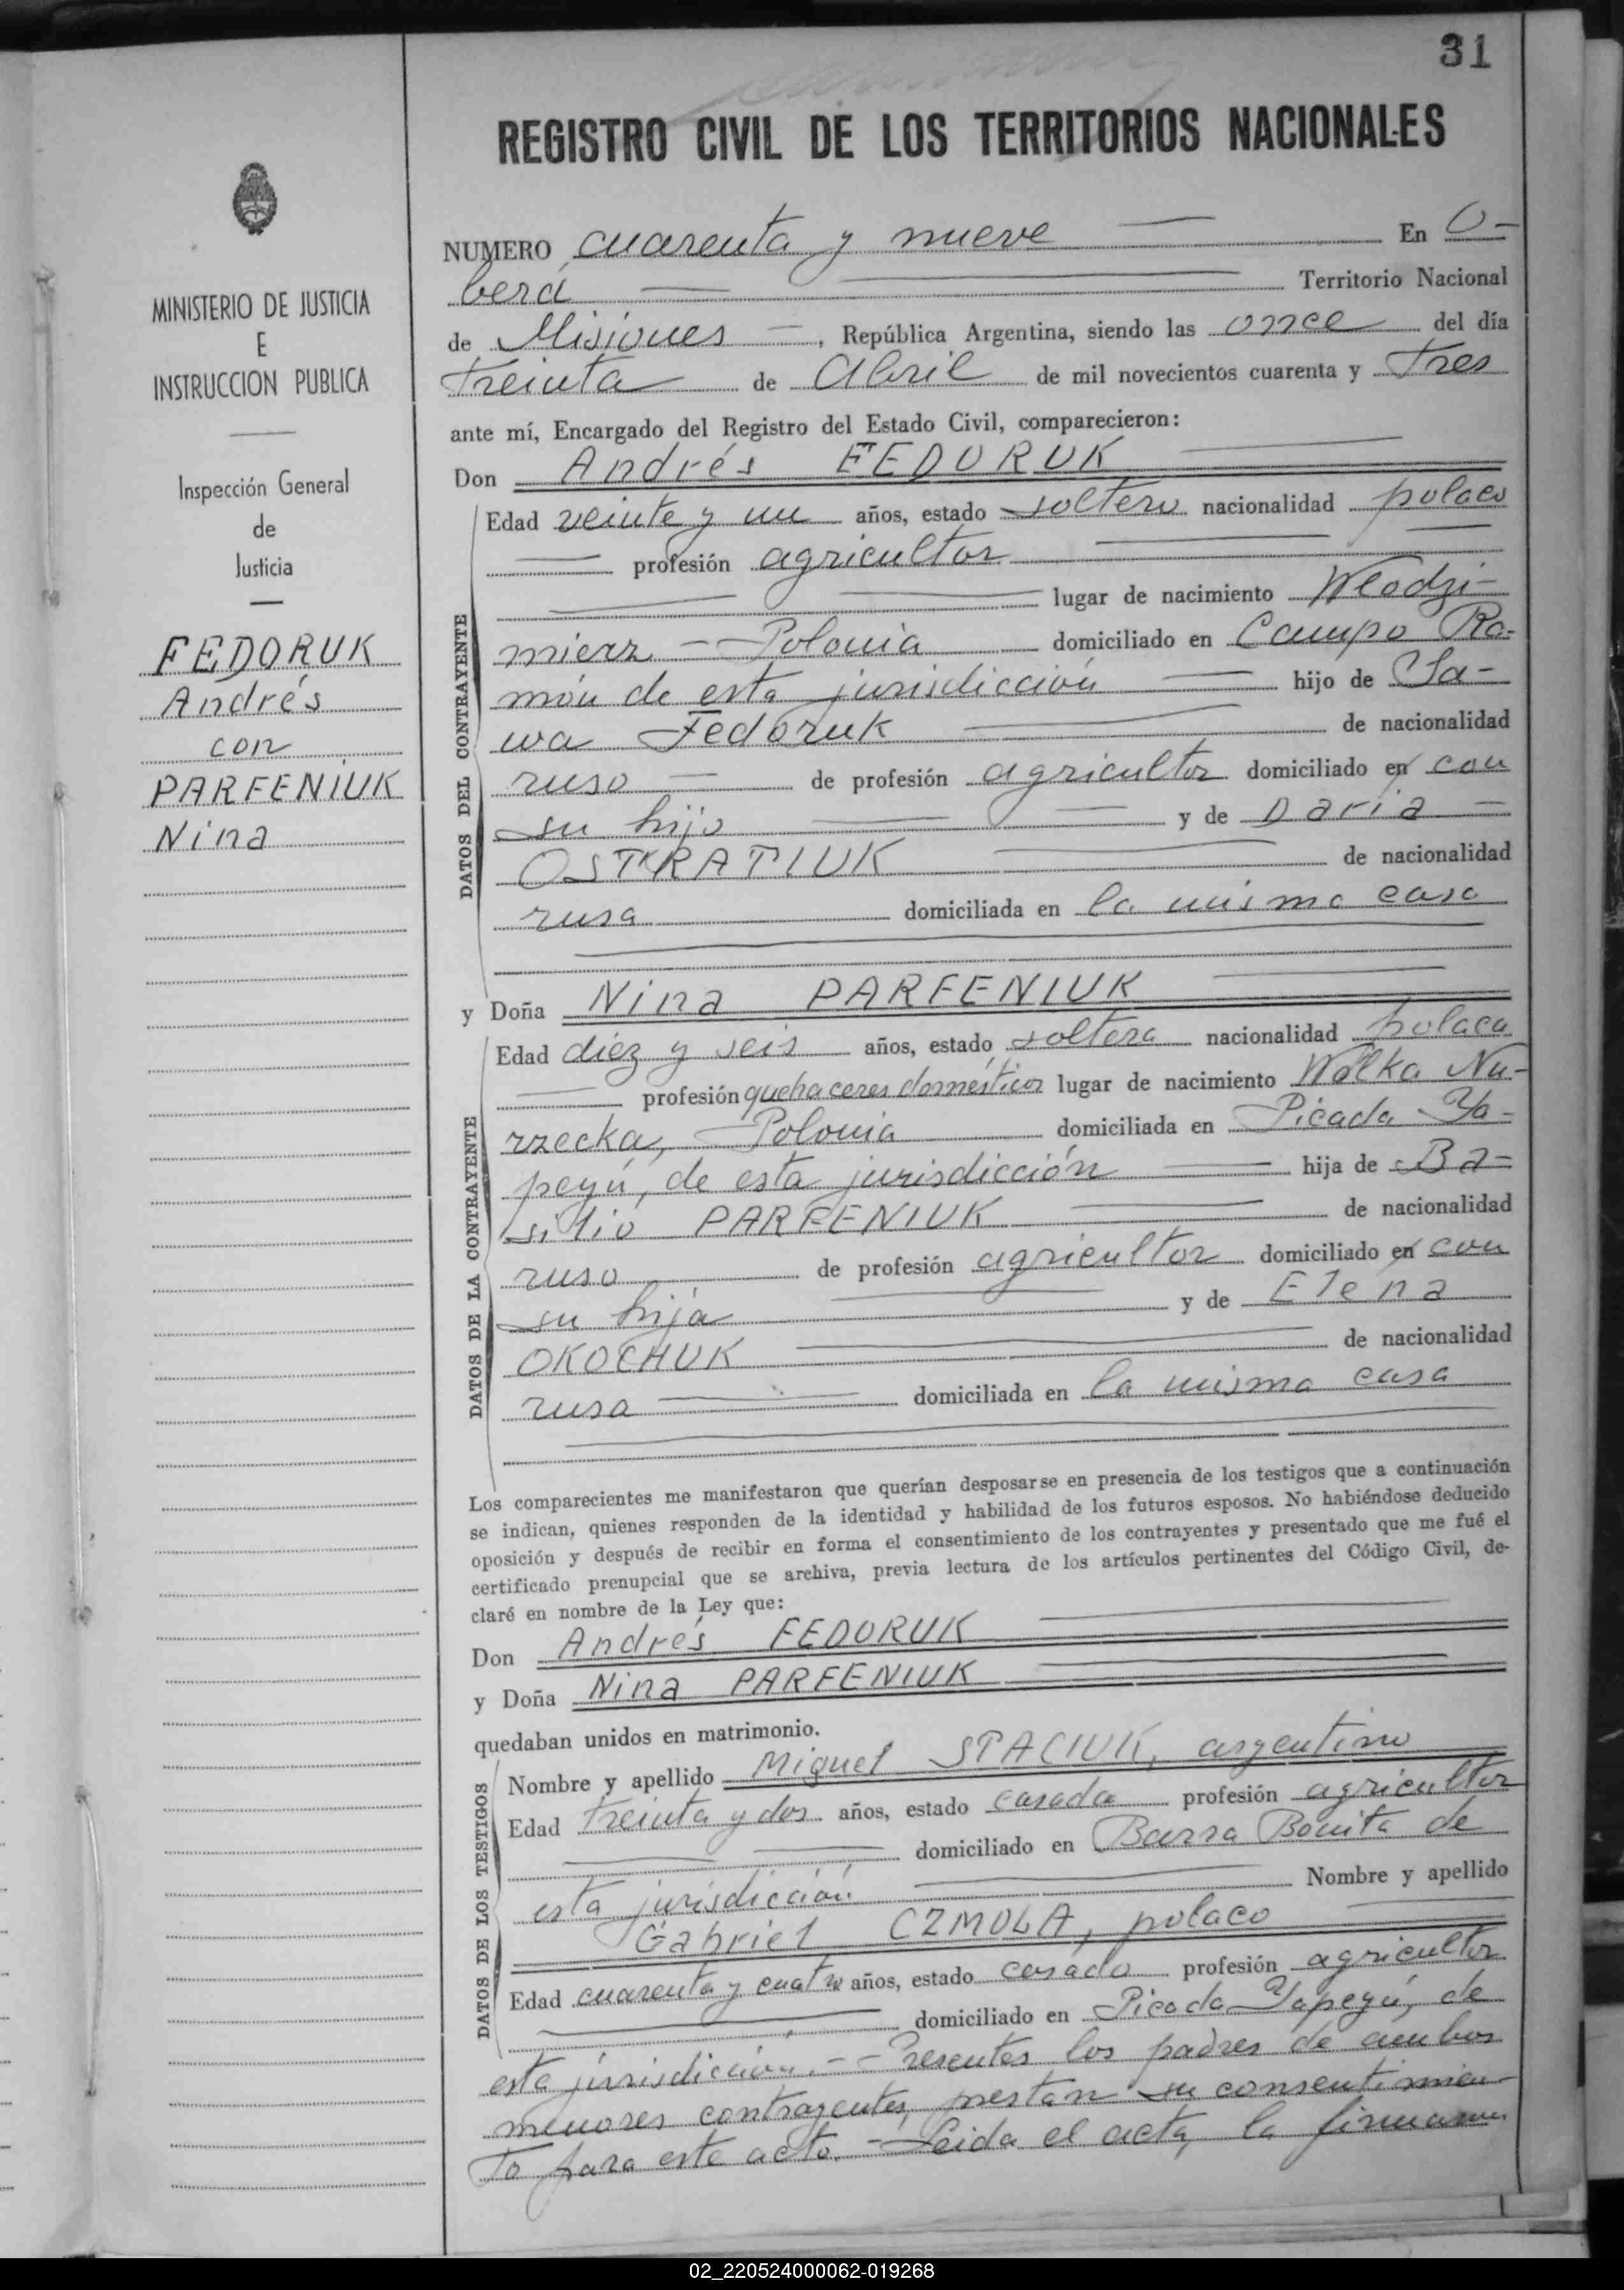 31
REGISTRO CIVIL DE LOS TERRITORIOS NACIONALES
MINISTERIO DE JUSTICIA
E
INSTRUCCION PUBLICA
Inspección General
de
Justicia
FEDORUK
Andrés
con
PARFENIUK
Nina
NUMERO cuarenta y nueve En O-
berá Territorio Nacional
de Misiones, República Argentina, siendo las once del día
treinta de Abril de mil novecientos cuarenta y tres
ante mí, Encargado del Registro del Estado Civil, comparecieron:
Don Andrés FEDORUK
DATOS DEL CONTRAYENTE
Edad veinte y un años, estado soltero nacionalidad polaco
profesión agricultor
lugar de nacimiento Wlodzi-
mierz - Polonia domiciliado en Campo Ra-
món de esta jurisdicción hijo de Sa-
wa Fedoruk de nacionalidad
ruso de profesión agricultor domiciliado en con
su hijo y de Daria
OSTRATIUK de nacionalidad
rusa domiciliada en la misma casa
y Doña Nina PARFENIUK
DATOS DE LA CONTRAYENTE
Edad diez y seis años, estado soltera nacionalidad polaca
profesión quehaceres domésticos lugar de nacimiento Wolka Nu-
rzecka, Polonia domiciliada en Picada Ya-
peyú, de esta jurisdicción hija de Ba-
silio PARFENIUK de nacionalidad
ruso de profesión agricultor domiciliado en con
su hija y de Elena
OKOCHUK de nacionalidad
rusa domiciliada en la misma casa
Los comparecientes me manifestaron que querían desposarse en presencia de los testigos que a continuación
se indican, quienes responden de la identidad y habilidad de los futuros esposos. No habiéndose deducido
oposición y después de recibir en forma el consentimiento de los contrayentes y presentado que me fué el
certificado prenupcial que se archiva, previa lectura de los artículos pertinentes del Código Civil, de-
claré en nombre de la Ley que:
Don Andrés FEDORUK
y Doña Nina PARFENIUK
quedaban unidos en matrimonio.
DATOS DE LOS TESTIGOS
Nombre y apellido Miguel SPACIUK, argentino
Edad treinta y dos años, estado casado profesión agricultor
domiciliado en Barra Bonita de
esta jurisdicción. Nombre y apellido
Gabriel CZMOLA, polaco
Edad cuarenta y cuatro años, estado casado profesión agricultor
domiciliado en Picada Yapeyú, de
esta jurisdicción. - - Presentes los padres de ambos
menores contrayentes, prestan su consentimien-
to para este acto. - Leida el acta, la firmaron
02_220524000062-019268